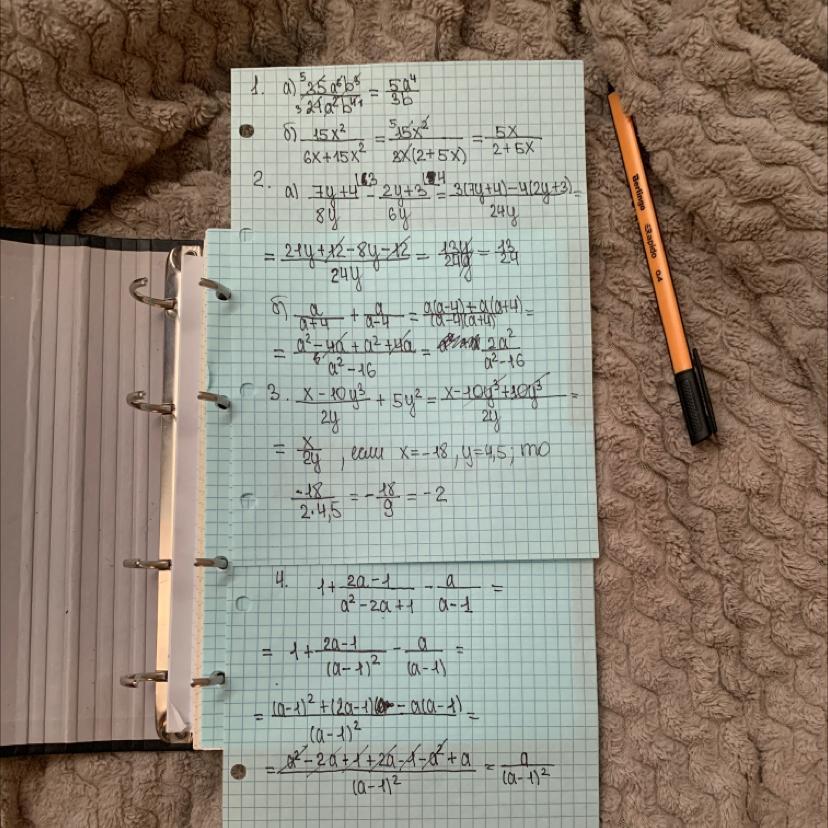 1. а) 35a⁶b³ / 21a²b⁴ = 5a⁴ / 3b
б) 15x² / 6x+15x² = 15x² / 3x(2+5x) = 5x / 2+5x
2. а) 7y+4 / 8y - 2y+3 / 6y = 3(7y+4)-4(2y+3) / 24y =
= 21y+12-8y-12 / 24y = 13y / 24y = 13 / 24
б) a / a+4 + a / a-4 = a(a-4)+a(a+4) / (a-4)(a+4) =
= a²-4a+a²+4a / a²-16 = 2a² / a²-16
3. x-10y³ / 2y + 5y² = x-10y³+10y³ / 2y =
= x / 2y , если x=-18, y=4,5; то
-18 / 2·4,5 = -18 / 9 = -2
4. 1+ 2a-1 / a²-2a+1 - a / a-1 =
= 1+ 2a-1 / (a-1)² - a / (a-1) =
= (a-1)²+(2a-1) - a(a-1) / (a-1)² =
= a²-2a+1+2a-1-a²+a / (a-1)² = a / (a-1)²
Berlingo Rapido 0.4